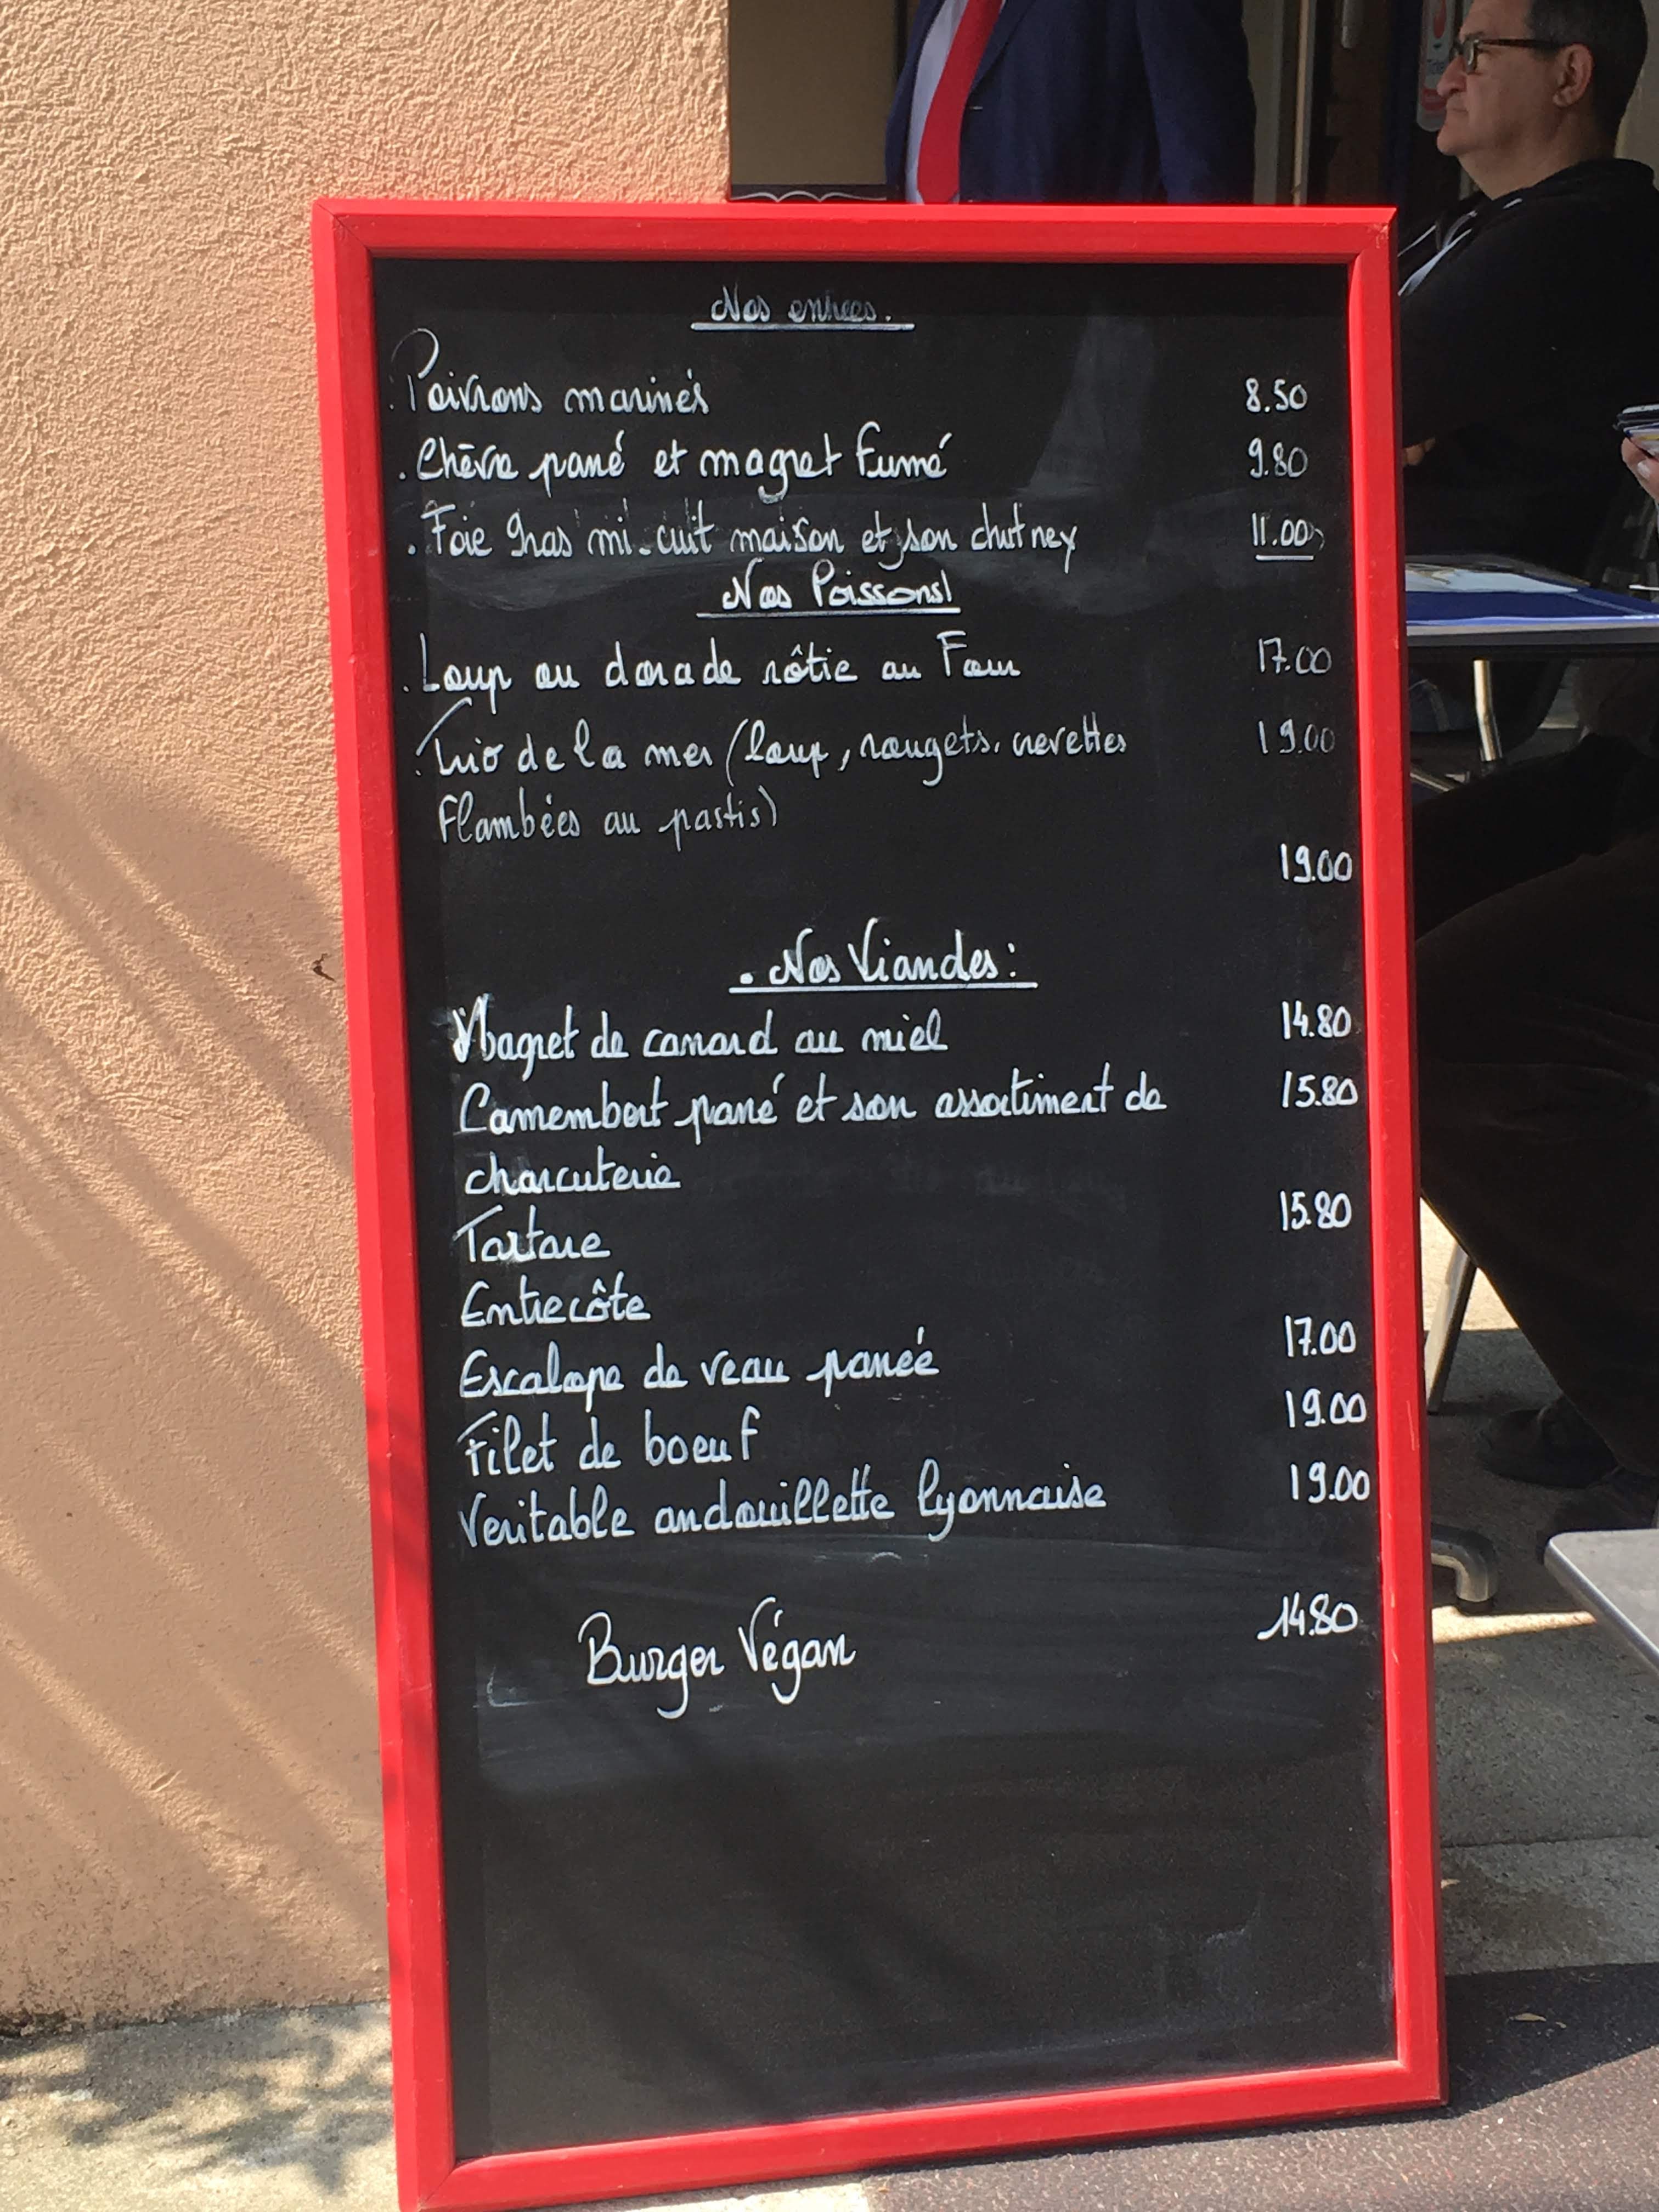 Nos entrees.
. Poivrons marinés 8.50
. Chèvre pané et magret fumé 9.80
. Foie gras mi-cuit maison et son chutney 11.00
Nos Poissons!
. Loup ou dorade rôtie au Four 17.00
. Trio de la mer (loup, rougets, crevettes 19.00
Flambées au pastis)
19.00
. Nos Viandes:
Magret de canard au miel 14.80
Camembert pané et son assortiment de 15.80
charcuterie
Tartare 15.80
Entrecôte
Escalope de veau panée 17.00
Filet de boeuf 19.00
Veritable andouillette lyonnaise 19.00
Burger Végan 14.80